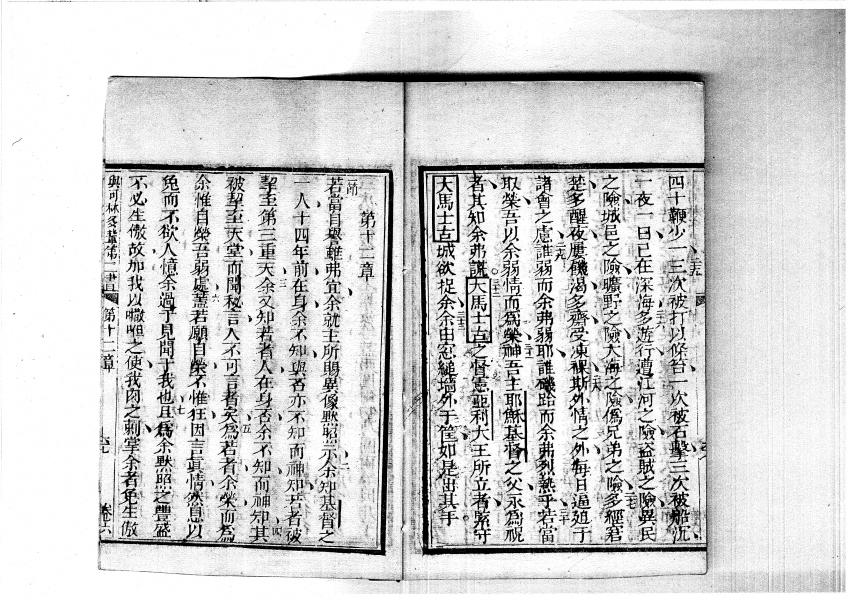 四十鞭少一三次被打以條笞一次被石擊三次被船沉
一夜一日已在深海多遊行遭江河之險盜賊之險異民
之險城邑之險曠野之險大海之險偽兄弟之險多經窘
楚多醒夜屢饑渴多齋受凍裸斯外情之外每日逼迫于
諸會之慮誰弱而余弗弱耶誰磯跲而余弗烈熱乎若當
取榮吾以余弱情而爲榮神吾主耶穌基督之父永爲祝
者其知余弗謊大馬士古之督憲亞利大王所立者緊守
大馬士古城欲捉余余由窓縋墻外于筐如是出其手
第十二章
若當自譽雖弗宜余就主所賜異像黙照示余知基督之
一人十四年前在身余不知與否亦不知而神知若者被
挈至第三重天余又知若者人在身否余不知而神知其
被挈至天堂而聞秘言人不可言者矣爲若者余榮而爲
余惟自榮吾弱處蓋若願自榮不惟狂因言眞情然息以
免而不欲人憶余過于見聞于我也且爲余黙照之豐盛
不必生傲故加我以㗳咀之使我肉之刺掌余者免生傲
與可林多輩第二書 第十二章 卷六